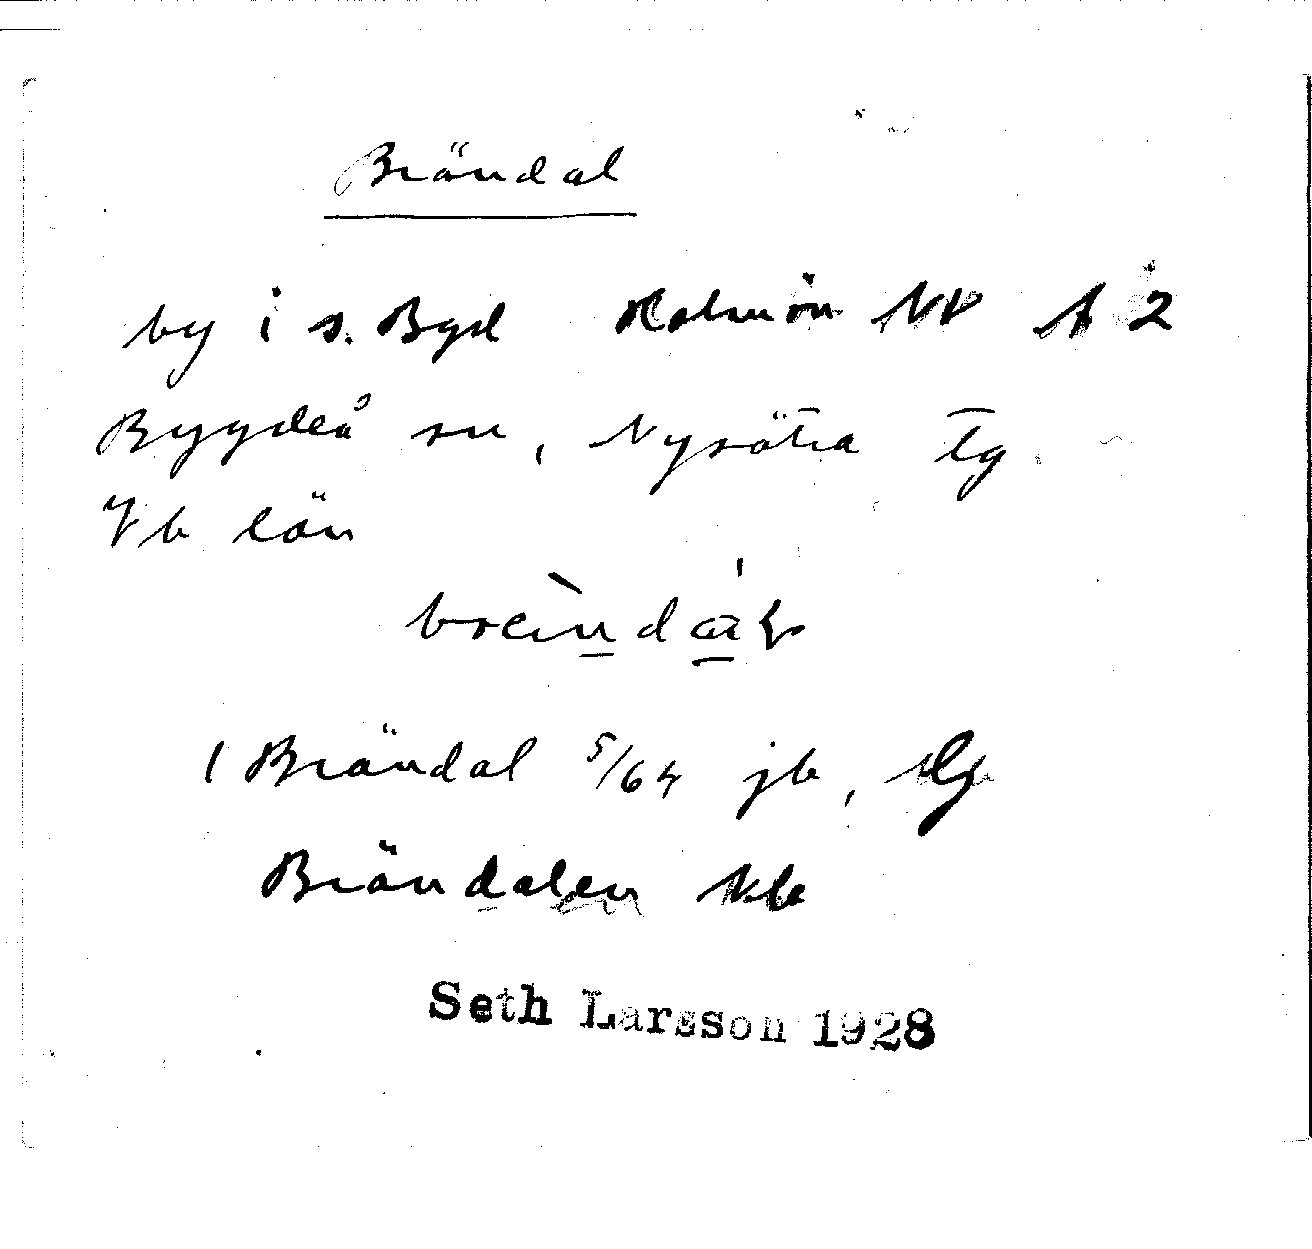 Brändal
by i s. Byd Holmön NV A 2
Bygdeå sn, Nysätra tg
Vb län
1 Brändal 5/64 jb,
Brändalen kb
Seth Larsson 1928